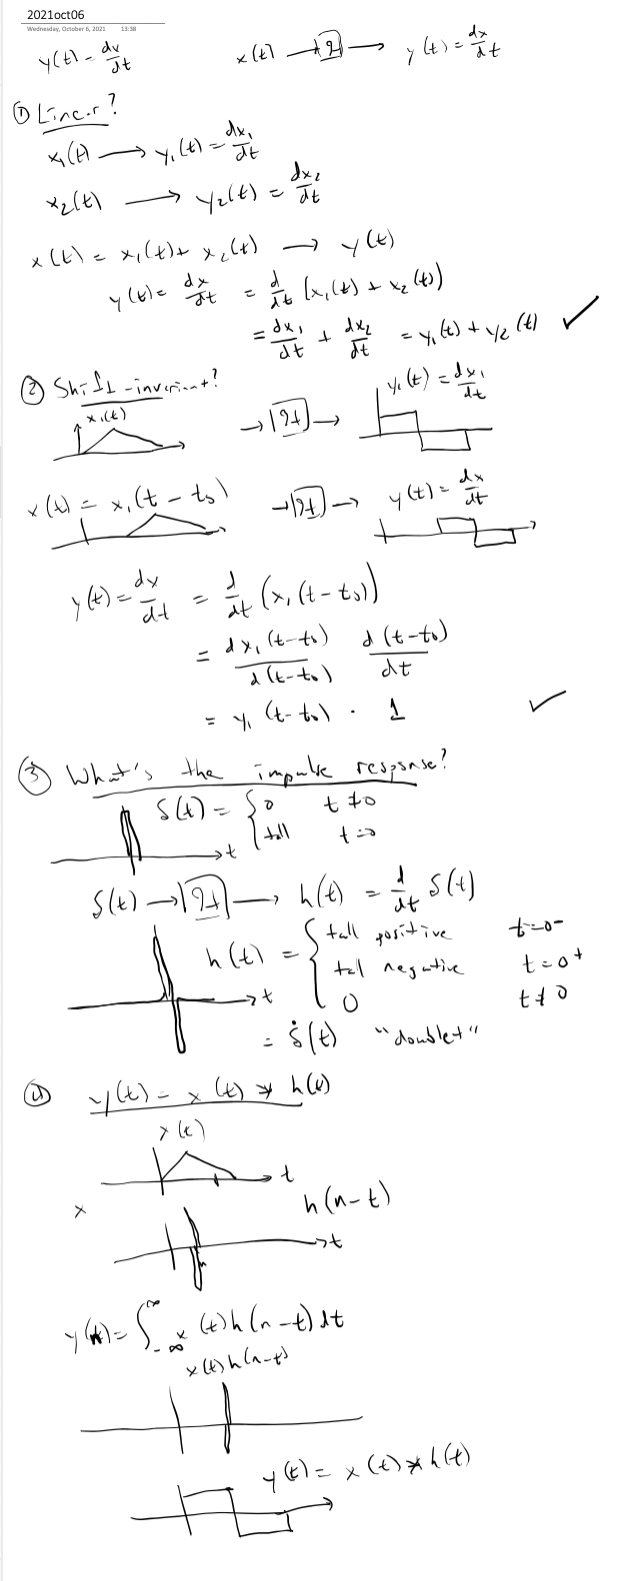 2021oct06
Wednesday, October 6, 2021 13:38
y(t) = dx/dt x(t) → → y(t) = dx/dt
① Linear?
x₁(t) → y₁(t) = dx₁/dt
x₂(t) → y₂(t) = dx₂/dt
x(t) = x₁(t) + x₂(t) → y(t)
y(t) = dx/dt = d/dt (x₁(t) + x₂(t))
= dx₁/dt + dx₂/dt = y₁(t) + y₂(t) ✓
② Shift-invariant?
x₁(t) → → y₁(t) = dx₁/dt
x(t) = x₁(t - t₀) → → y(t) = dx/dt
y(t) = dx/dt = d/dt (x₁(t - t₀))
= dx₁(t-t₀)/d(t-t₀) d(t-t₀)/dt
= y₁(t-t₀) · 1 ✓
③ What's the impulse response?
δ(t) = { 0 t≠0
tall t=0
t
δ(t) → → h(t) = d/dt δ(t)
h(t) = { tall positive t=0-
tall negative t=0+
t
0 t≠0
= δ̇(t) "doublet"
④ y(t) = x(t) * h(t)
x(t)
t
x h(n-t)
t
y(n) = ∫_{-∞}^{∞} x(t)h(n-t)dt
x(t)h(n-t)
y(t) = x(t) * h(t)